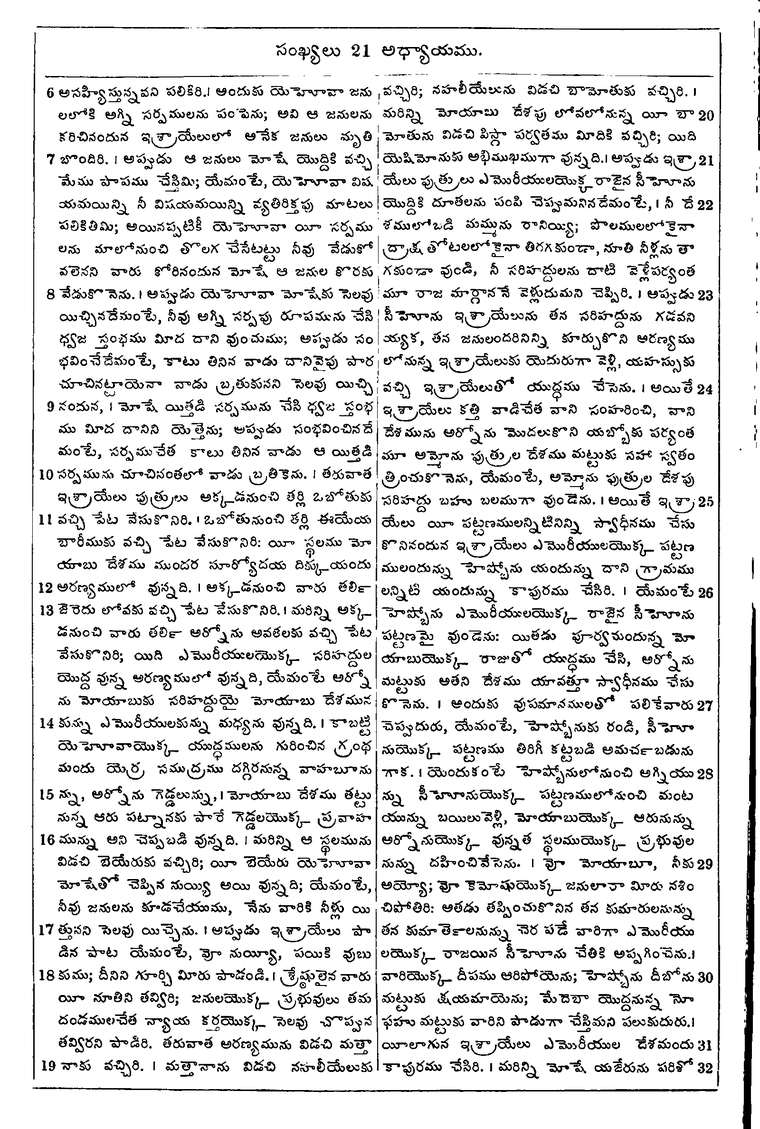 సంఖ్యలు 21 అధ్యాయము.
6 అసహ్యిస్తున్నవని పలికిరి. ౹ అందుకు యెహోవా జను
లలోకి అగ్ని సర్పములను పంపెను; అవి ఆ జనులను
కరిచినందున ఇశ్రాయేలులో అనేక జనులు మృతి
7 బొందిరి. ౹ అప్పుడు ఆ జనులు మోషే యొద్దికి వచ్చి
మేము పాపము చేస్తిమి; యేమంటే, యెహోవా విష
యమయిన్ని నీ విషయమయిన్ని వ్యతిరిక్తపు మాటలు
పలికితిమి; అయినప్పటికీ యెహోవా యీ సర్పము
లను మాలోనుంచి తొలగ చేసేటట్టు నీవు వేడుకో
వలెనని వారు కోరినందున మోషే ఆ జనుల కొరకు
8 వేడుకొనెను. ౹ అప్పుడు యెహోవా మోషేకు సెలవు
యిచ్చినదేమంటే, నీవు అగ్ని సర్పపు రూపమును చేసి
ధ్వజ స్తంభము మీద దాని వుంచుము; అప్పుడు సం
భవించేదేమంటే, కాటు తినిన వాడు దానివైపు పార
చూచినట్టాయెనా వాడు బ్రతుకునని సెలవు యిచ్చి
9 నందున, ౹ మోషే యిత్తడి సర్పమును చేసి ధ్వజ స్తంభ
ము మీద దానిని యెత్తెను; అప్పుడు సంభవించినదే
మంటే, సర్పముచేత కాటు తినిన వాడు ఆ యిత్తడి
10 సర్పమును చూచినంతలో వాడు బ్రతికెను. ౹ తరువాత
ఇశ్రాయేలు పుత్రులు అక్కడనుంచి తర్లి ఒబోతుకు
11 వచ్చి పేట వేసుకొనిరి. ౹ ఒబోతునుంచి తర్లి ఈయేయ
బారీముకు వచ్చి పేట వేసుకొనిరి: యీ స్థలము మో
యాబు దేశము ముందర సూర్యోదయ దిక్కుయందు
12 అరణ్యములో వున్నది. ౹ అక్కడనుంచి వారు తర్లి
13 జెరెదు లోవకు వచ్చి పేట వేసుకొనిరి. ౹ మరిన్ని అక్క
డనుంచి వారు తర్లి అర్నోను అవతలకు వచ్చి పేట
వేసుకొనిరి; యిది ఎమొరీయులయొక్క సరిహద్దుల
యొద్ద వున్న అరణ్యములో వున్నది, యేమంటే అర్నో
ను మోయాబుకు సరిహద్దుయై మోయాబు దేశమున
14 కున్ను ఎమొరీయులకున్ను మధ్యను వున్నది. ౹ కాబట్టి
యెహోవాయొక్క యుద్ధములను గురించిన గ్రంథ
మందు యెర్ర సముద్రము దగ్గిరనున్న వాహబూను
15 న్ను, అర్నోను గెడ్డలున్ను, ౹ మోయాబు దేశము తట్టు
నున్న ఆరు పట్నానకు పారే గెడ్డలయొక్క ప్రవాహ
16 మున్ను అని చెప్పబడి వున్నది. ౹ మరిన్ని ఆ స్థలమును
విడచి బెయేరుకు వచ్చిరి; యీ బెయేరు యెహోవా
మోషేతో చెప్పిన నుయ్యి అయి వున్నది; యేమంటే,
నీవు జనులను కూడచేయుము, నేను వారికి నీళ్లు యి
17 త్తునని సెలవు యిచ్చెను. ౹ అప్పుడు ఇశ్రాయేలు పా
డిన పాట యేమంటే, వ్హో నుయ్యీ, పయికి వుబు
18 కుము; దీనిని గూర్చి మీరు పాడండి. ౹ శ్రేష్ఠులైన వారు
యీ నూతిని తవ్విరి; జనులయొక్క ప్రభువులు తమ
దండములచేత న్యాయ కర్తయొక్క సెలవు చొప్పున
తవ్విరని పాడిరి. తరువాత అరణ్యమును విడచి మత్తా
19 నాకు వచ్చిరి. ౹ మత్తానాను విడచి నహలీయేలుకు
వచ్చిరి; నహలీయేలును విడచి బామోతుకు వచ్చిరి. ౹
మరిన్ని మోయాబు దేశపు లోవలోనున్న యీ బా 20
మోతును విడచి పిస్గా పర్వతము మీదికి వచ్చిరి; యిది
యెషిమోనుకు అభిముఖముగా వున్నది. ౹ అప్పుడు ఇశ్రా 21
యేలు పుత్రులు ఎమొరీయులయొక్క రాజైన సీహోను
యొద్దికి దూతలను పంపి చెప్పుమనినదేమంటే, ౹ నీ దే 22
శములోబడి మమ్మును రానియ్యి; పొలములలోకైనా
ద్రాక్ష తోటలలోకైనా తిరగకుండా, నూతి నీళ్లను తా
గకుండా వుండి, నీ సరిహద్దులను దాటి వెళ్లేపర్యంత
మూ రాజ మార్గాననే వెళ్లుదుమని చెప్పిరి. ౹ అప్పుడు 23
సీహోను ఇశ్రాయేలును తన సరిహద్దును గడవని
య్యక, తన జనులందరినిన్ని కూర్చుకొని అరణ్యము
లోనున్న ఇశ్రాయేలుకు యెదురుగా వెళ్లి, యహస్సుకు
వచ్చి ఇశ్రాయేలుతో యుద్ధము చేసెను. ౹ అయితే 24
ఇశ్రాయేలు కత్తి వాడిచేత వాని సంహరించి, వాని
దేశమును అర్నోను మొదలుకొని యబ్బోకు పర్యంత
మూ అమ్మోను పుత్రుల దేశము మట్టుకు సహా స్వతం
త్రించుకొనెను, యేమంటే, అమ్మోను పుత్రుల దేశపు
సరిహద్దు బహు బలముగా వుండెను. ౹ అయితే ఇశ్రా 25
యేలు యీ పట్టణములన్నిటినిన్ని స్వాధీనము చేసు
కొనినందున ఇశ్రాయేలు ఎమొరీయులయొక్క పట్టణ
ములందున్ను హెష్బోను యందున్ను దాని గ్రామము
లన్నిటి యందున్ను కాపురము చేసిరి. ౹ యేమంటే 26
హెష్బోను ఎమొరీయులయొక్క రాజైన సీహోను
పట్టణమై వుండెను: యితడు పూర్వమందున్న మో
యాబుయొక్క రాజుతో యుద్ధము చేసి, అర్నోను
మట్టుకు అతని దేశము యావత్తూ స్వాధీనము చేసు
కొనెను. ౹ అందుకు వుపమానములతో పలికేవారు 27
చెప్పుదురు, యేమంటే, హెష్బోనుకు రండి, సీహో
నుయొక్క పట్టణము తిరిగీ కట్టబడి అమర్చబడును
గాక. ౹ యెందుకంటే హెష్బోనులోనుంచి అగ్నియు 28
న్ను సీహోనుయొక్క పట్టణములోనుంచి మంట
యున్ను బయిలువెళ్లి, మోయాబుయొక్క ఆరునున్ను
అర్నోనుయొక్క వున్నత స్థలముయొక్క ప్రభువుల
నున్ను దహించివేసెను. ౹ వ్హో మోయాబూ, నీకు 29
అయ్యో; వ్హో కెమోషుయొక్క జనులారా మీరు నశిం
చిపోతిరి: అతడు తప్పించుకొనిన తన కుమారులనున్ను
తన కుమార్తెలనున్ను చెర పడే వారిగా ఎమొరీయు
లయొక్క రాజయిన సీహోను చేతికి అప్పగించెను. ౹
వారియొక్క దీపము ఆరిపోయెను; హెష్బోను దీబోను 30
మట్టుకు క్షయమాయెను; మేదెబా యొద్దనున్న నో
ఫహు మట్టుకు వారిని పాడుగా చేస్తిమని పలుకుదురు. ౹
యీలాగున ఇశ్రాయేలు ఎమొరీయుల దేశమందు 31
కాపురము చేసిరి. ౹ మరిన్ని మోషే యజేరును పరిశో 32